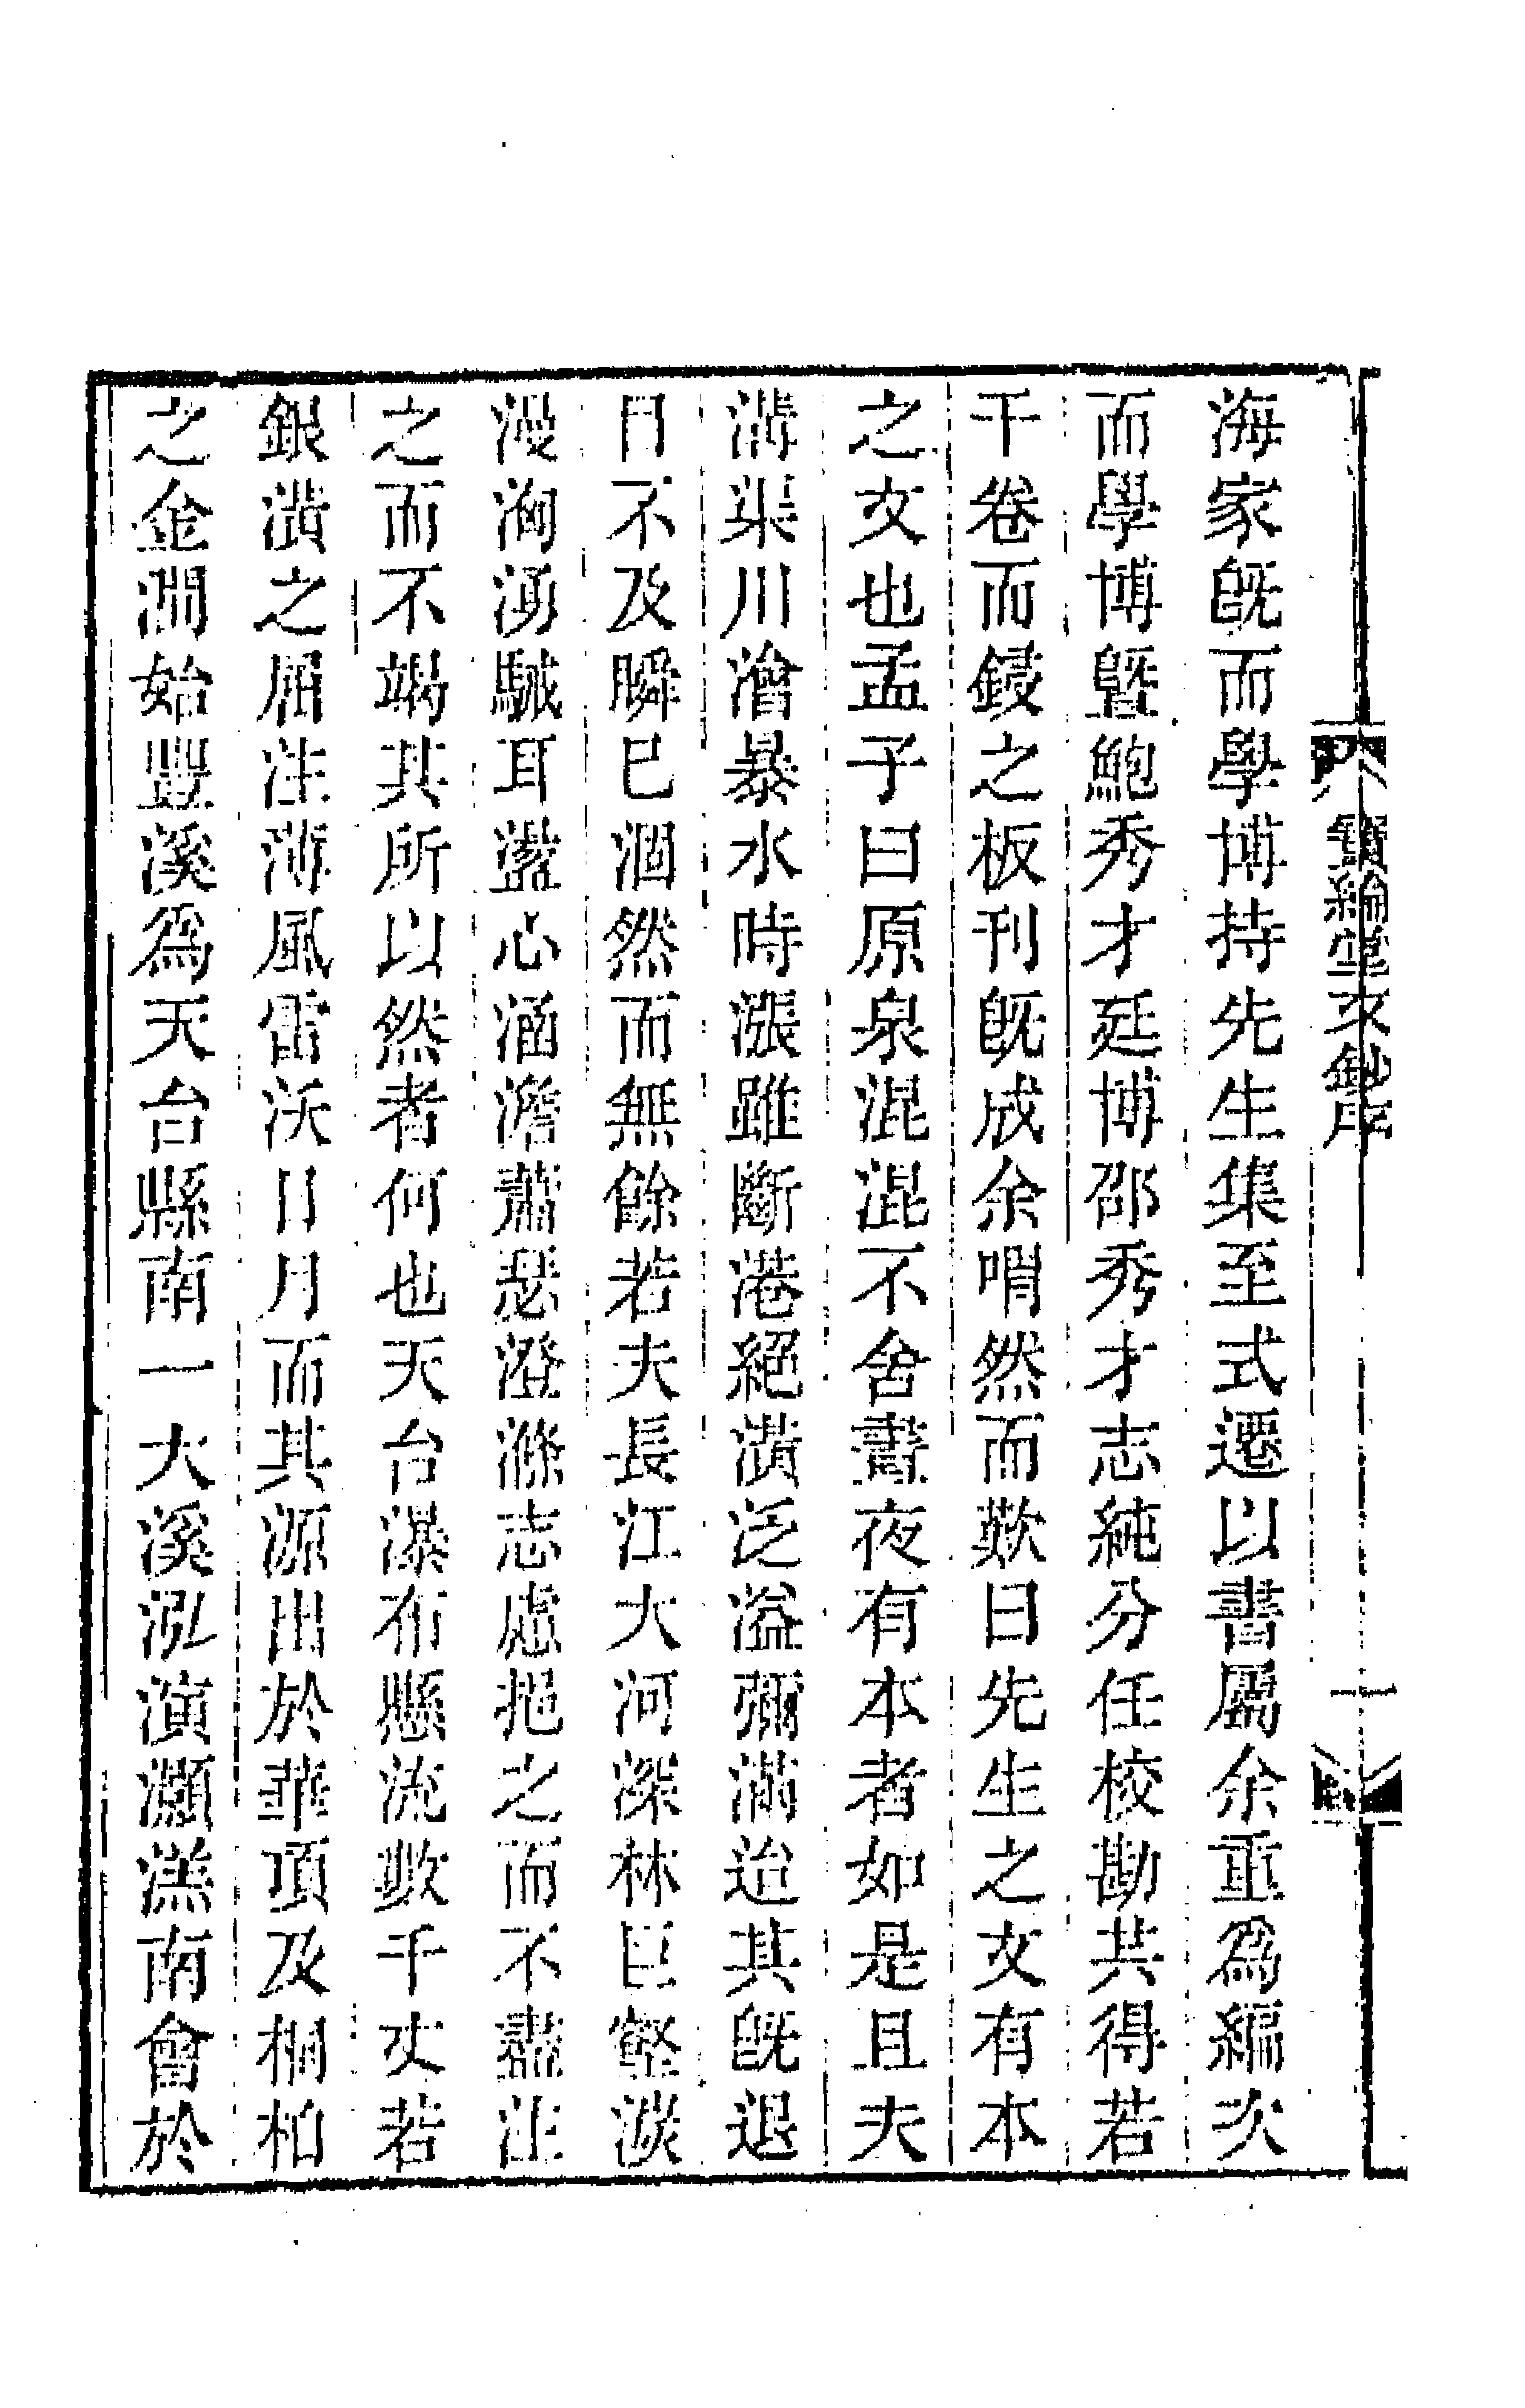 寶綸堂文鈔序
一
海家旣而學博持先生集至式遷以書屬余重爲編次
而學博曁鮑秀才廷博邵秀才志純分任校勘共得若
干卷而鋟之板刊旣成余喟然而歎曰先生之文有本
之文也孟子曰原泉混混不舍晝夜有本者如是且夫
溝渠川澮暴水時漲雖斷港絕潢泛溢彌滿迨其旣退
目不及瞬已涸然而無餘若夫長江大河深林巨壑淡
漫洶湧駴耳盪心涵澹蕭瑟澄滌志慮挹之而不盡注
之而不竭其所以然者何也天台瀑布懸流數千丈若
銀潢之屈注薄風雷沃日月而其源出於華頂及桐柏
之金澗始豐溪爲天台縣南一大溪泓演灝溔南會於